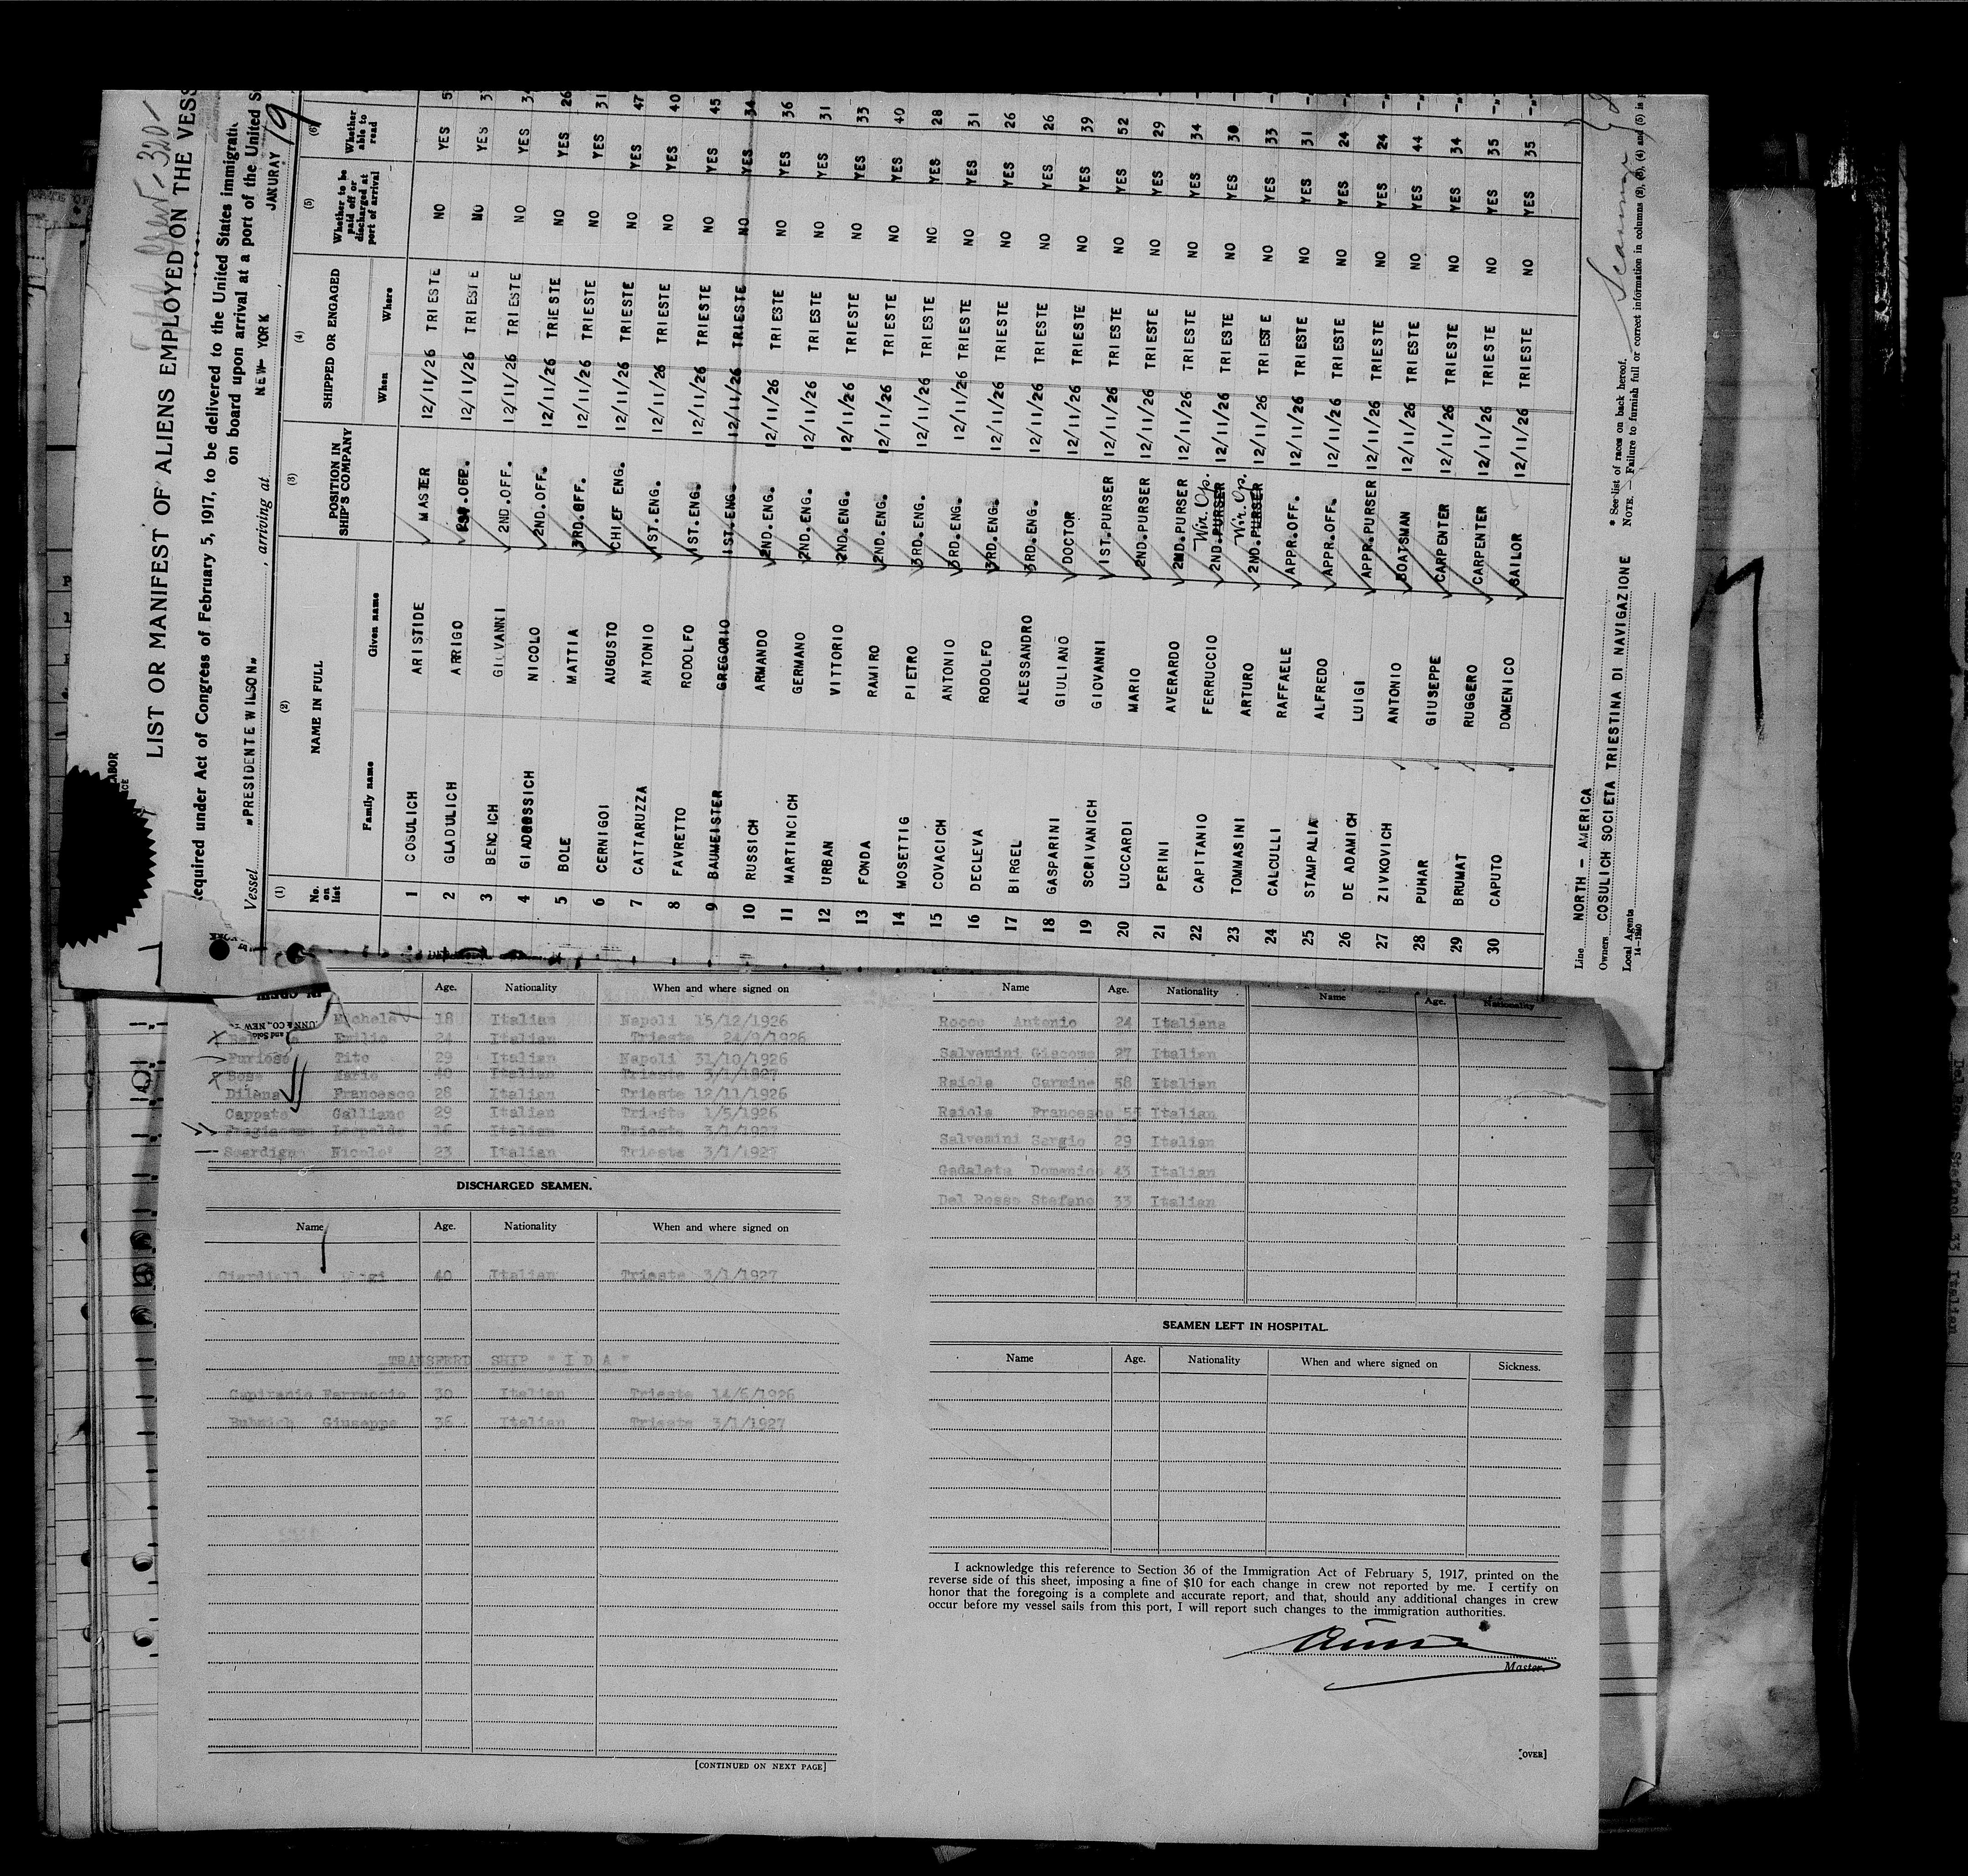 LIST OR MANIFEST OF ALIENS EMPLOYED ON THE VESS
Required under Act of Congress of February 5, 1917, to be delivered to the United States immigratio
on board upon arrival at a port of the United S
Vessel "PRESIDENTE WILSON" , arriving at NEW YORK JANURAY 19
(1) (2) (3) (4) (5) (6)
No. on list NAME IN FULL POSITION IN SHIP'S COMPANY SHIPPED OR ENGAGED Whether to be paid off or discharged at port of arrival Whether able to read
Family name Given name When Where
1 COSULICH ARISTIDE MASTER 12/11/26 TRIESTE NO YES 5
2 GLADULICH ARRIGO 1ST.OFF. 12/11/26 TRIESTE NO YES 3
3 BENCICH GIOVANNI 2ND.OFF. 12/11/26 TRIESTE NO YES 34
4 GIADROSSICH NICOLO 2ND.OFF. 12/11/26 TRIESTE NO YES 26
5 BOLE MATTIA 3RD.OFF. 12/11/26 TRIESTE NO YES 31
6 CERNIGOI AUGUSTO CHIEF ENG. 12/11/26 TRIESTE NO YES 47
7 CATTARUZZA ANTONIO 1ST.ENG. 12/11/26 TRIESTE NO YES 40
8 FAVRETTO RODOLFO 1ST.ENG. 12/11/26 TRIESTE NO YES 45
9 BAUMEISTER GREGORIO 1ST.ENG. 12/11/26 TRIESTE NO YES 34
10 RUSSICH ARMANDO 2ND.ENG. 12/11/26 TRIESTE NO YES 36
11 MARTINCICH GERMANO 2ND.ENG. 12/11/26 TRIESTE NO YES 31
12 URBAN VITTORIO 2ND.ENG. 12/11/26 TRIESTE NO YES 33
13 FONDA RAMIRO 2ND.ENG. 12/11/26 TRIESTE NO YES 40
14 MOSETTIG PIETRO 3RD.ENG. 12/11/26 TRIESTE NO YES 28
15 COVACICH ANTONIO 3RD.ENG. 12/11/26 TRIESTE NO YES 31
16 DECLEVA RODOLFO 3RD.ENG. 12/11/26 TRIESTE NO YES 26
17 BIRGEL ALESSANDRO 3RD.ENG. 12/11/26 TRIESTE NO YES 26
18 GASPARINI GIULIANO DOCTOR 12/11/26 TRIESTE NO YES 39
19 SCRIVANICH GIOVANNI 1ST.PURSER 12/11/26 TRIESTE NO YES 52
20 LUCCARDI MARIO 2ND.PURSER 12/11/26 TRIESTE NO YES 29
21 PERINI AVERARDO 2ND.PURSER 12/11/26 TRIESTE NO YES 34
22 CAPITANIO FERRUCCIO 2ND.PURSER Wir. Op. 12/11/26 TRIESTE NO YES 30
23 TOMMASINI ARTURO 2ND.PURSER Wir. Op. 12/11/26 TRIESTE NO YES 33
24 CALCULLI RAFFAELE APPR.OFF. 12/11/26 TRIESTE NO YES 31
25 STAMPALIA ALFREDO APPR.OFF. 12/11/26 TRIESTE NO YES 24
26 DE ADAMICH LUIGI APPR.PURSER 12/11/26 TRIESTE NO YES 24
27 ZIVKOVICH ANTONIO BOATSMAN 12/11/26 TRIESTE NO YES 44
28 PUHAR GIUSEPPE CARPENTER 12/11/26 TRIESTE NO YES 34
29 BRUMAT RUGGERO CARPENTER 12/11/26 TRIESTE NO YES 35
30 CAPUTO DOMENICO SAILOR 12/11/26 TRIESTE NO YES 35
Line NORTH - AMERICA
Owners COSULICH SOCIETA TRIESTINA DI NAVIGAZIONE
Local Agents
* See list of races on back hereof.
NOTE. — Failure to furnish full or correct information in columns (2), (3), (4) and (5) is
Age. Nationality When and where signed on
Michele 18 Italian Napoli 15/12/1926
Emilio 24 Italian Trieste 24/9/1926
Furioso Tito 29 Italian Napoli 31/10/1926
Mario 40 Italian Trieste 3/1/1927
Dilena Francesco 28 Italian Trieste 12/11/1926
Cappato Galliano 29 Italian Trieste 1/5/1926
Fragiacomo Leopoldo 16 Italian Trieste 3/1/1927
Scardigno Nicolo' 23 Italian Trieste 3/1/1927
DISCHARGED SEAMEN.
Name Age. Nationality When and where signed on
Ciardiello Luigi 40 Italian Trieste 3/1/1927
TRANSFERD SHIP "IDA"
Capitanio Ferruccio 30 Italian Trieste 14/6/1926
Giuseppe 36 Italian Trieste 3/1/1927
[CONTINUED ON NEXT PAGE]
Name Age. Nationality Name Age. Nationality
Rocco Antonio 24 Italiana
Salvemini Giacomo 27 Italian
Raiola Carmine 58 Italian
Raiola Francesco 55 Italian
Salvemini Sergio 29 Italian
Gadaleta Domenico 43 Italian
Del Rosso Stefano 33 Italian
SEAMEN LEFT IN HOSPITAL.
Name Age. Nationality When and where signed on Sickness.
I acknowledge this reference to Section 36 of the Immigration Act of February 5, 1917, printed on the
reverse side of this sheet, imposing a fine of $10 for each change in crew not reported by me. I certify on
honor that the foregoing is a complete and accurate report, and that, should any additional changes in crew
occur before my vessel sails from this port, I will report such changes to the immigration authorities.
Master.
[OVER]